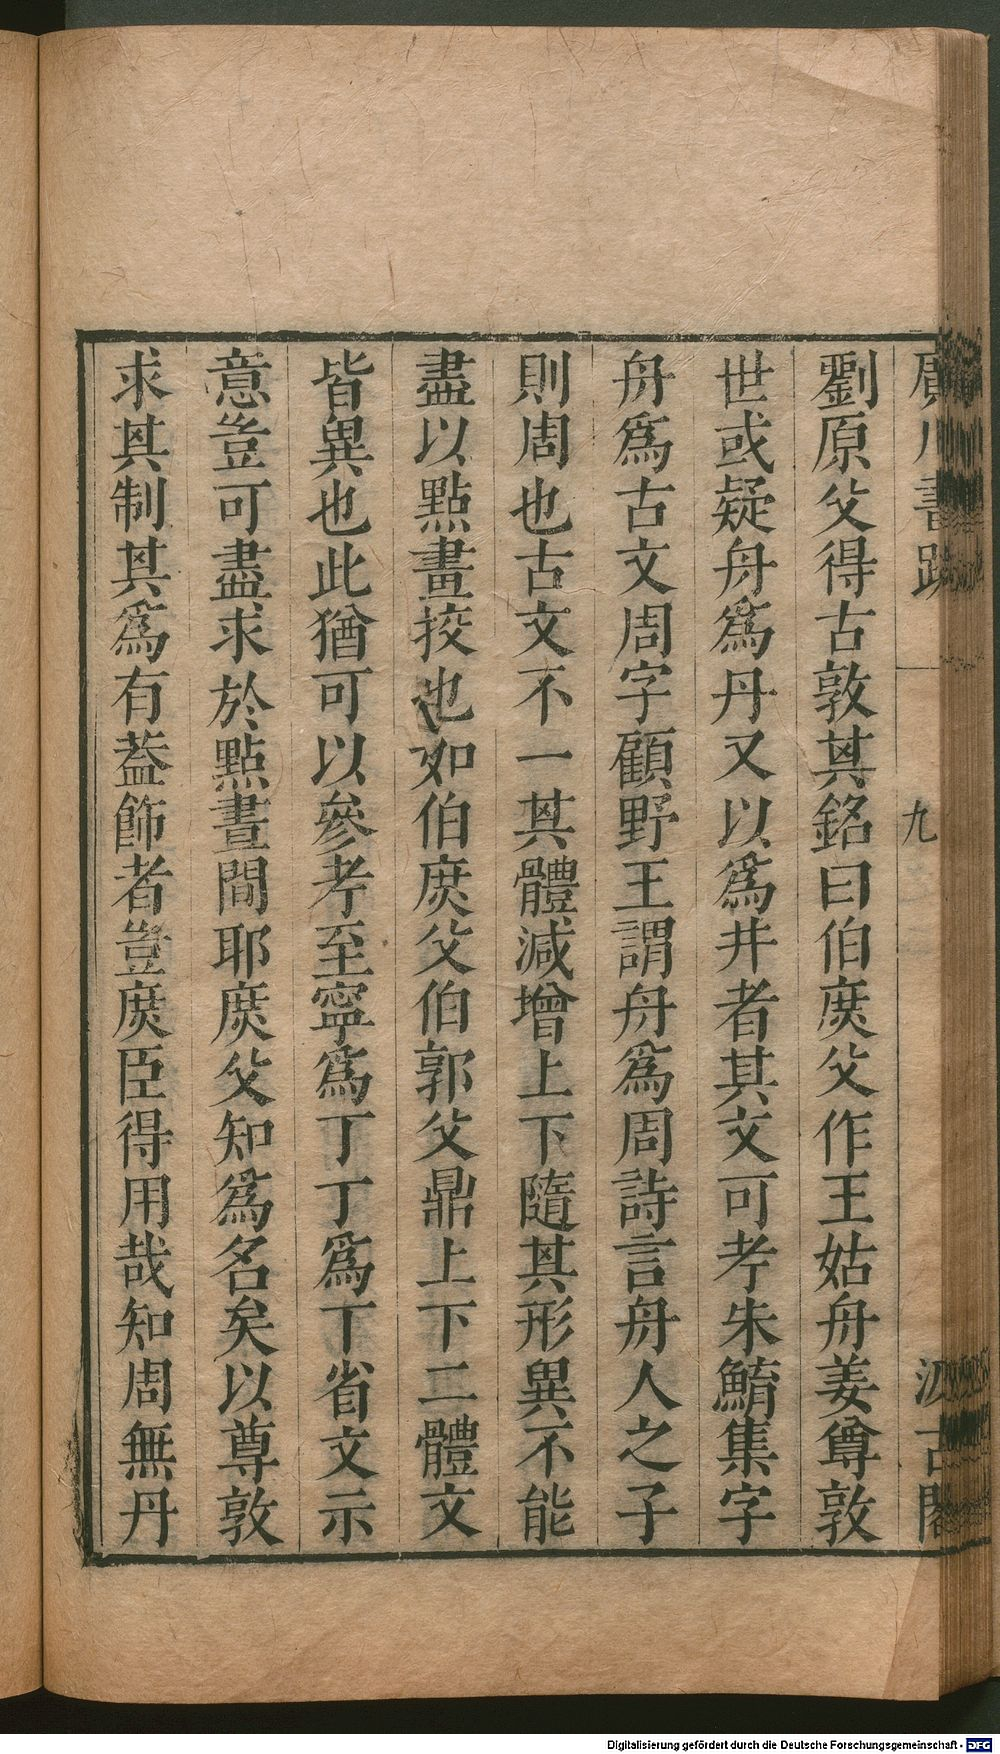 廣川書跋
九
汲古閣
劉原父得古敦其銘曰伯庶父作王姑舟姜尊敦
世或疑舟為丹又以為井者其文可考朱鮪集字
舟為古文周字顧野王謂舟為周詩言舟人之子
則周也古文不一其體減增上下隨其形異不能
盡以點畫挍也如伯庶父伯郭父鼎上下二體文
皆異也此猶可以參考至寧為丁丁為丅省文示
意豈可盡求於點畫間耶庶父知為名矣以尊敦
求其制其為有葢飾者豈庶臣得用哉知周無丹
Digitalisierung gefördert durch die Deutsche Forschungsgemeinschaft - DFG